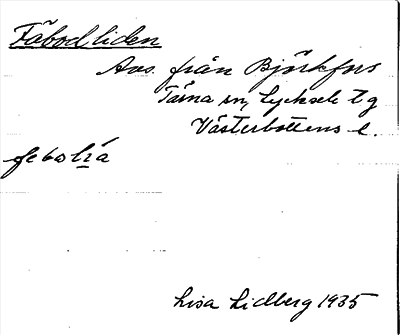 Fäbodliden
Avs. från Björkfors
Tärna sn, Lycksele tg
Västerbottens l.
febolía
Lisa Lidberg 1935